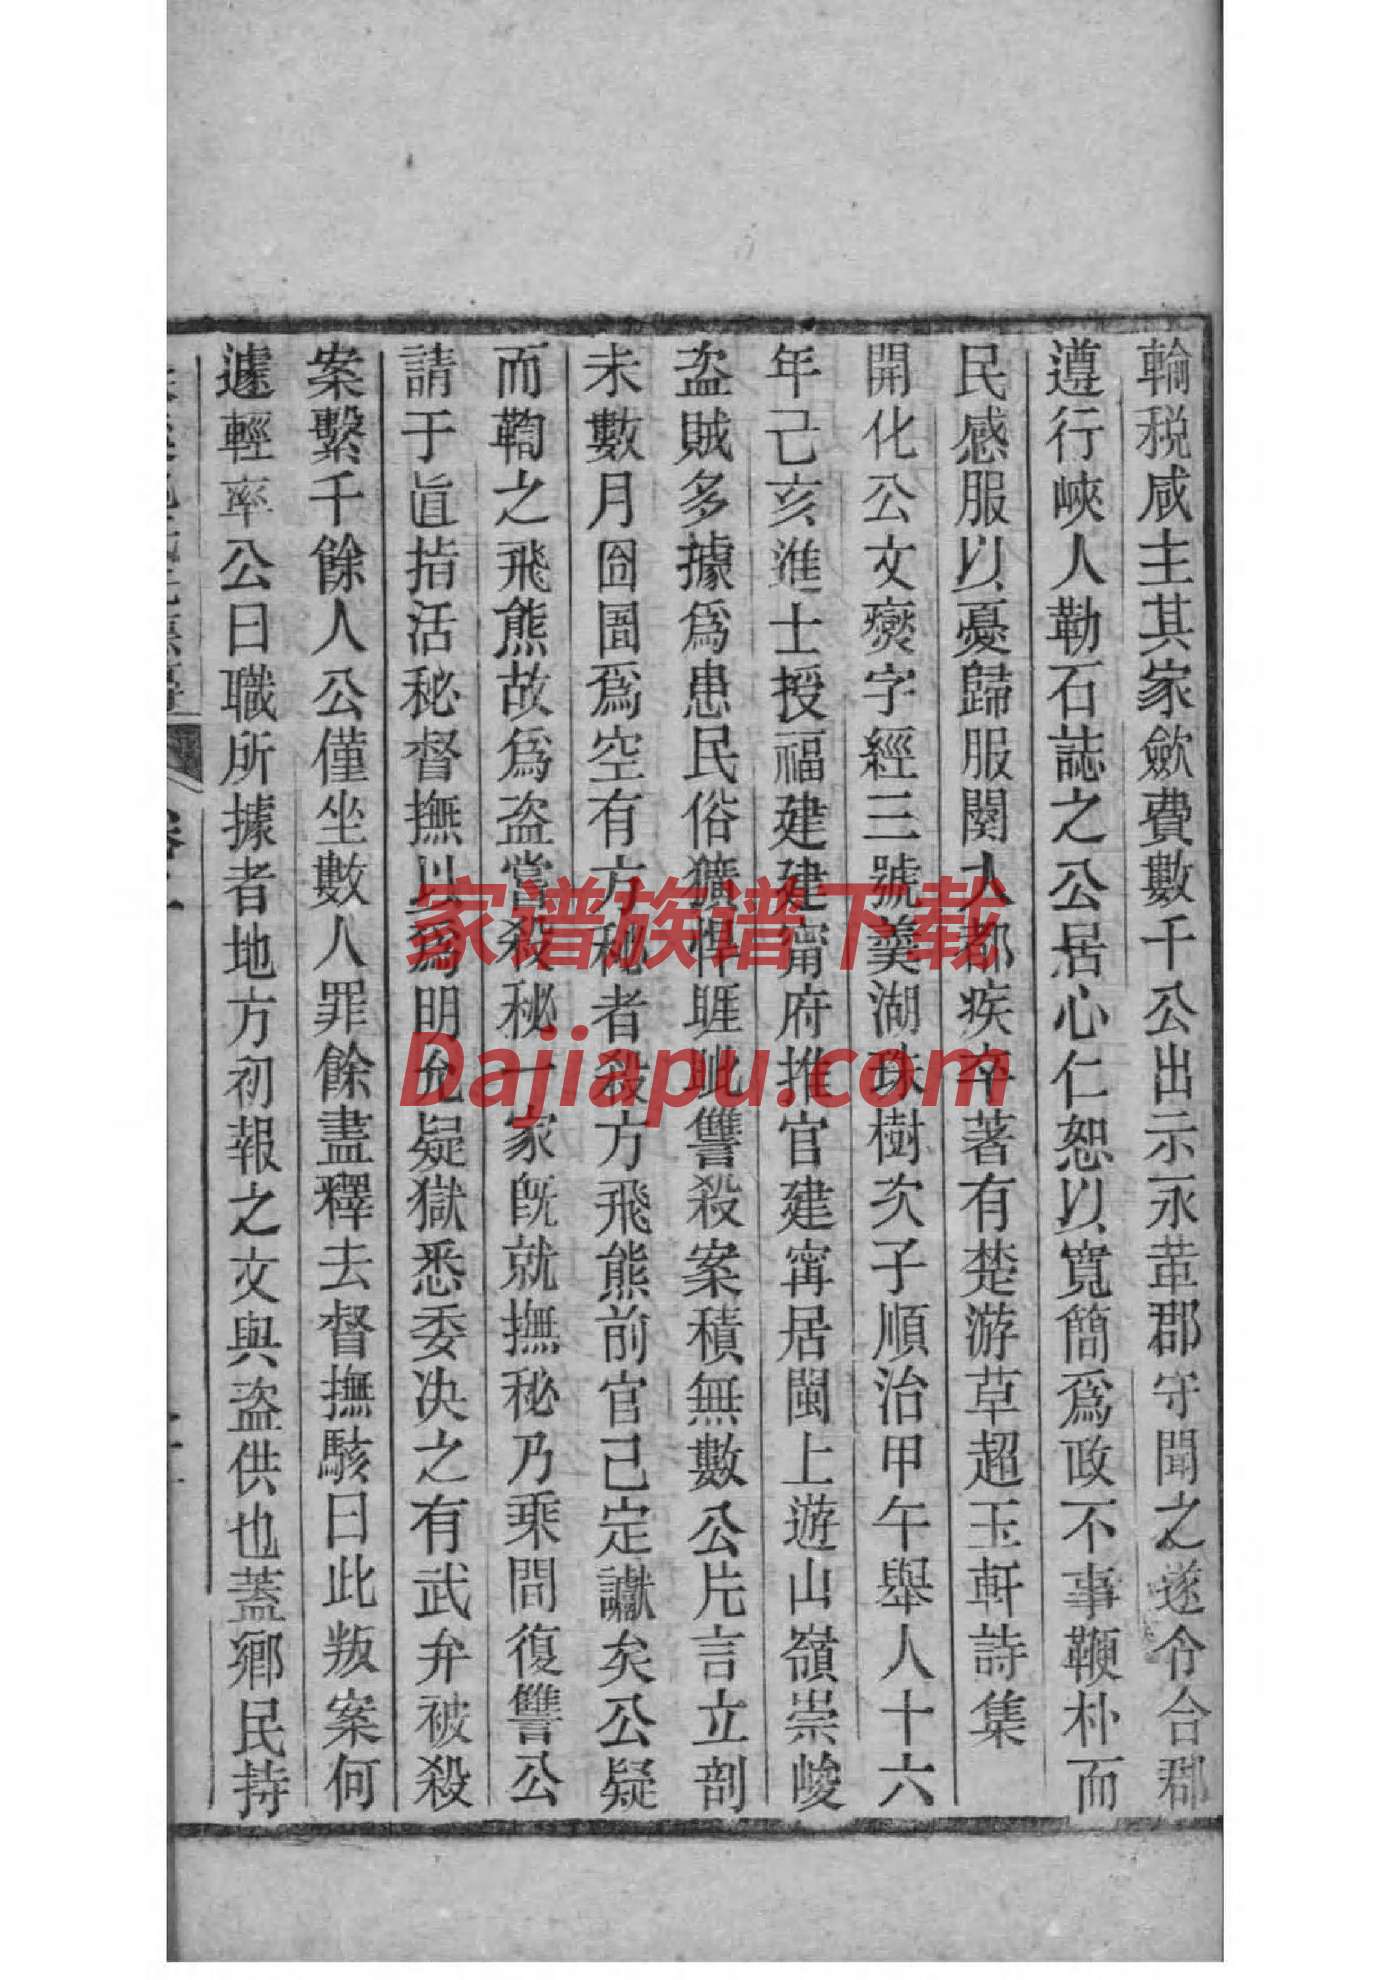 輪税咸主其家歛費數千公出示永革郡守聞之遂令合郡
遵行峽人勒石誌之公居心仁恕以寬簡爲政不事鞭朴而
民感服以憂歸服闋入都疾卒著有楚游草超玉軒詩集
開化公文爕字經三號羹湖珠樹次子順治甲午舉人十六
年己亥進士授福建建甯府推官建寗居閩上遊山嶺崇峻
盗賊多據爲患民俗獷悍睚眦讐殺案積無數公片言立剖
未數月囹圄爲空有方秘者殺方飛熊前官己定讞矣公疑
而鞫之飛熊故爲盗嘗殺秘一家既就撫秘乃乘間復讐公
請于直指活秘督撫以爲明允疑獄悉委决之有武弁被殺
案繫千餘人公僅坐數人罪餘盡釋去督撫駭曰此叛案何
遽輕率公曰職所據者地方初報之文與盗供也蓋鄉民持
家谱族谱下载
Dajiapu.com